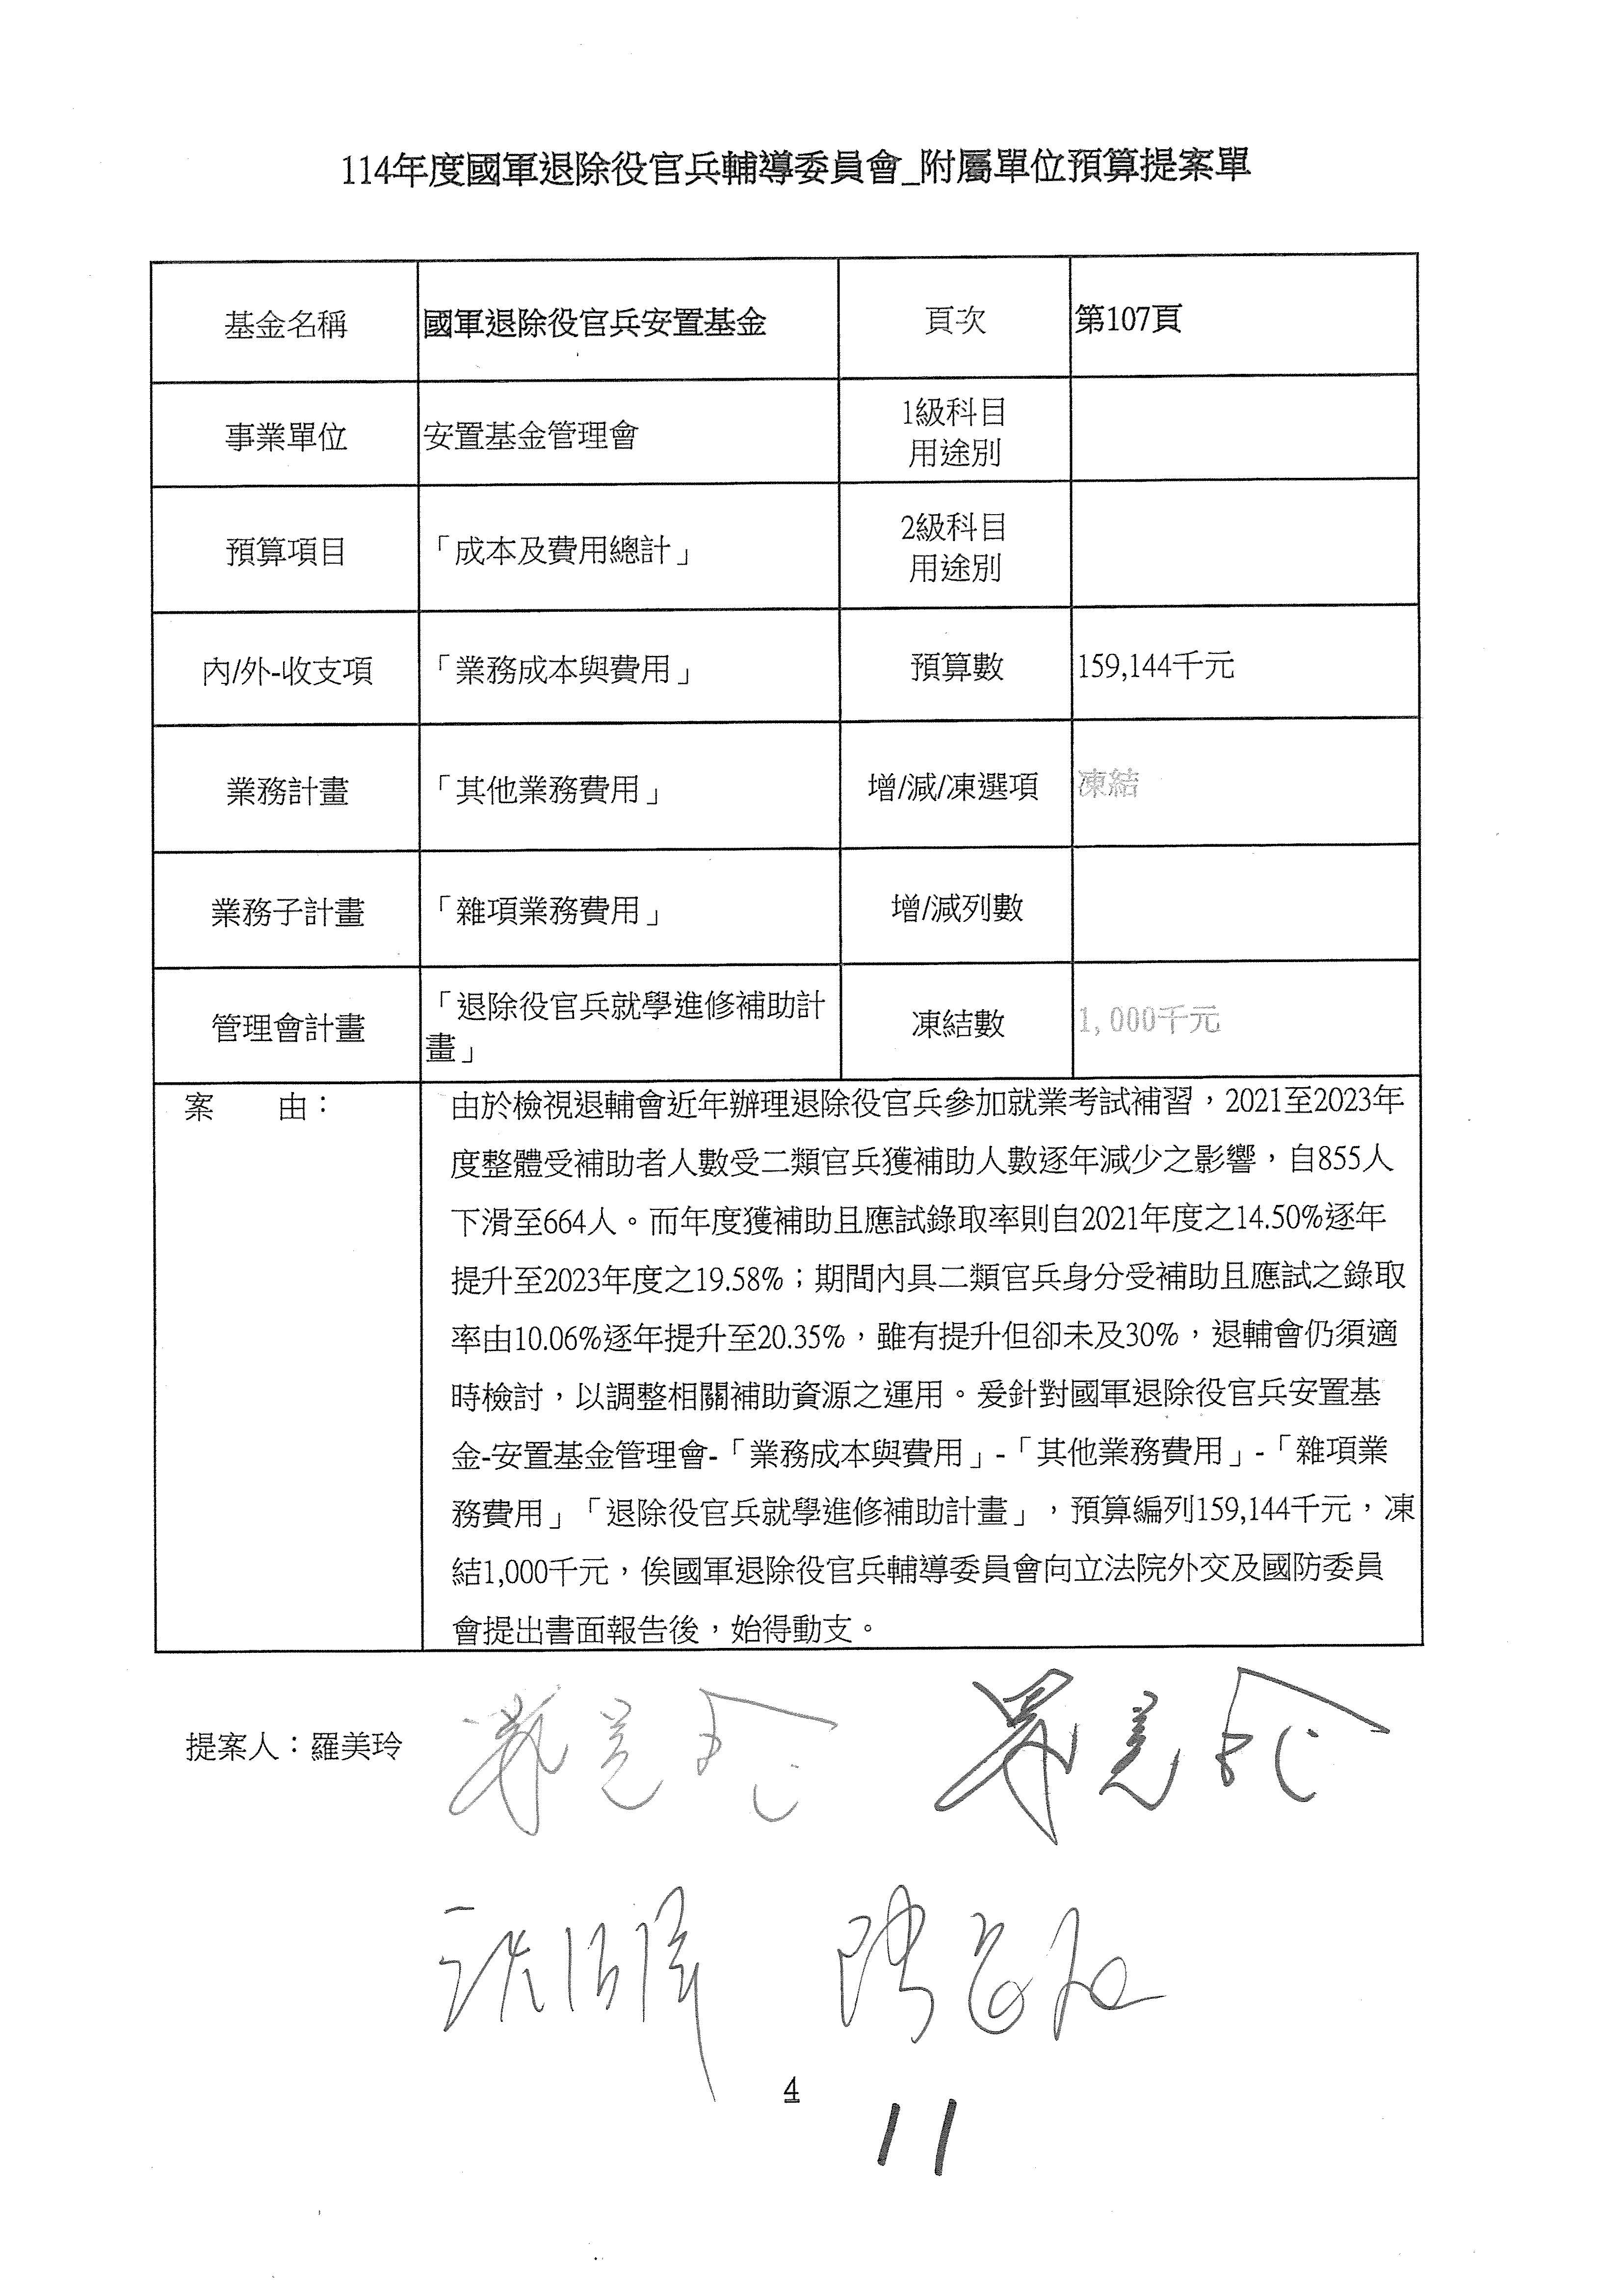 114年度國軍退除役官兵輔導委員會_附屬單位預算提案單
基金名稱 國軍退除役官兵安置基金 頁次 第107頁
事業單位 安置基金管理會 1級科目
用途別
預算項目 「成本及費用總計」 2級科目
用途別
內/外-收支項 「業務成本與費用」 預算數 159,144千元
業務計畫 「其他業務費用」 增/減/凍選項 凍結
業務子計畫 「雜項業務費用」 增/減列數
管理會計畫 「退除役官兵就學進修補助計
畫」 凍結數 1,000千元
案　　由： 由於檢視退輔會近年辦理退除役官兵參加就業考試補習，2021至2023年
度整體受補助者人數受二類官兵獲補助人數逐年減少之影響，自855人
下滑至664人。而年度獲補助且應試錄取率則自2021年度之14.50%逐年
提升至2023年度之19.58%；期間內具二類官兵身分受補助且應試之錄取
率由10.06%逐年提升至20.35%，雖有提升但卻未及30%，退輔會仍須適
時檢討，以調整相關補助資源之運用。爰針對國軍退除役官兵安置基
金-安置基金管理會-「業務成本與費用」-「其他業務費用」-「雜項業
務費用」「退除役官兵就學進修補助計畫」，預算編列159,144千元，凍
結1,000千元，俟國軍退除役官兵輔導委員會向立法院外交及國防委員
會提出書面報告後，始得動支。
提案人：羅美玲 羅美玲 羅美玲
4
11